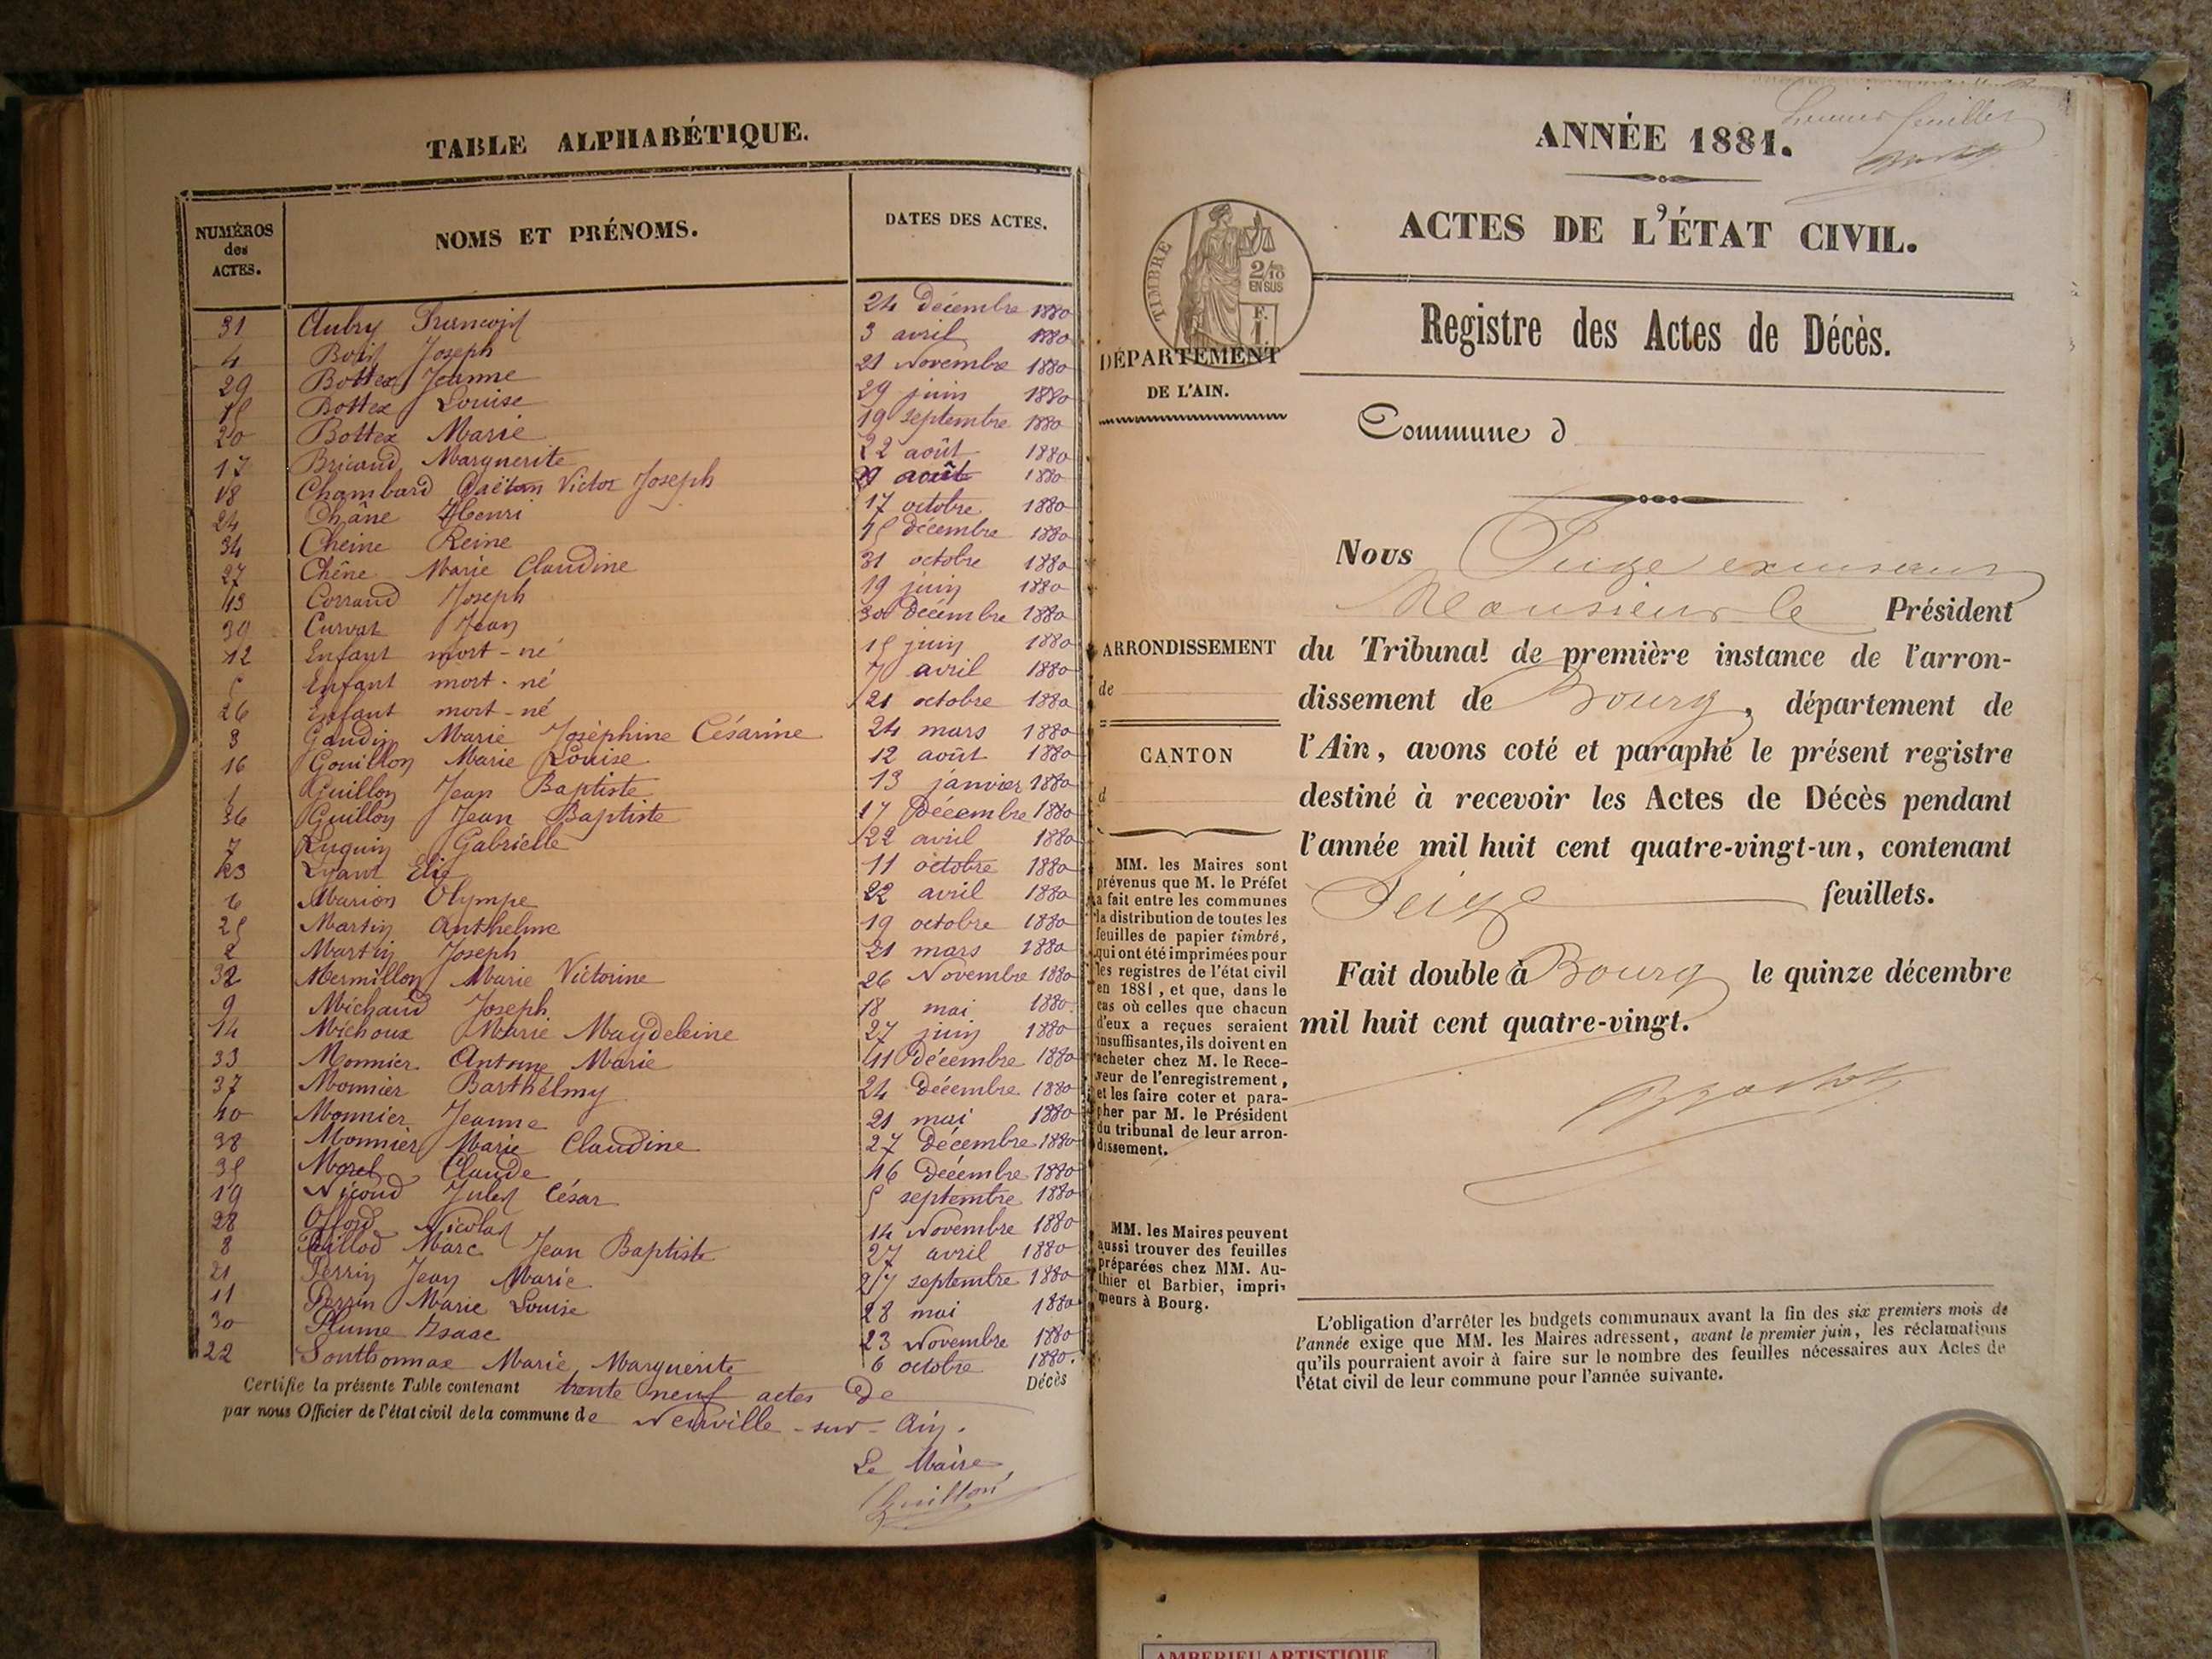 TABLE ALPHABÉTIQUE.
NUMÉROS des ACTES. NOMS ET PRÉNOMS. DATES DES ACTES.
31 Aubry François 24 décembre 1880
4 Joseph 3 avril 1880
29 Bottex Jeanne 21 Novembre 1880
15 Bottex Louise 29 juin 1880
20 Bottex Marie 19 septembre 1880
17 Bricaud Marguerite 22 août 1880
18 Chambard Gaëtan Victor Joseph août 1880
24 Chêne Henri 17 octobre 1880
34 Cheine Reine 15 décembre 1880
27 Chêne Marie Claudine 31 octobre 1880
13 Corraud Joseph 19 juin 1880
39 Curvat Jean 30 Décembre 1880
12 Enfant mort-né 15 juin 1880
5 Enfant mort-né 7 avril 1880
26 Enfant mort-né 21 octobre 1880
3 Gaudin Marie Joséphine Césarine 24 mars 1880
16 Gouillon Marie Louise 12 août 1880
1 Guillon Jean Baptiste 13 janvier 1880
36 Guillon Jean Baptiste 17 Décembre 1880
7 Luguin Gabrielle 22 avril 1880
23 Elie 11 octobre 1880
6 Marion Olympe 22 avril 1880
25 Martin Anthelme 19 octobre 1880
2 Martin Joseph 21 mars 1880
32 Mermillon Marie Victorine 26 Novembre 1880
9 Michaud Joseph 18 mai 1880
14 Michoux Marie Magdeleine 27 juin 1880
33 Monnier Antoine Marie 11 décembre 1880
37 Monnier Barthélmy 24 Décembre 1880
10 Monnier Jeanne 21 mai 1880
38 Monnier Marie Claudine 27 Décembre 1880
35 Morel Claude 16 Décembre 1880
19 Nicoud Jules César 5 septembre 1880
28 Nicolas 14 Novembre 1880
8 Paillod Marc Jean Baptiste 27 avril 1880
21 Perrin Jean Marie 27 septembre 1880
11 Perrin Marie Louise 28 mai 1880
30 Plume Isaac 23 Novembre 1880
22 Southonnax Marie Marguerite 6 octobre 1880.
Certifie la présente Table contenant trente neuf actes de Décès
par nous Officier de l'état civil de la commune de Neuville-sur-Ain.
Le Maire
Guillon
Premier feuillet
ANNÉE 1881.
ACTES DE L'ÉTAT CIVIL.
TIMBRE
2/10
EN SUS
F.
1
Registre des Actes de Décès.
DÉPARTEMENT
DE L'AIN.
Commune d
Nous Juge
Monsieur le Président
ARRONDISSEMENT
de
CANTON
d
du Tribunal de première instance de l'arron-
dissement de Bourg, département de
l'Ain, avons coté et paraphé le présent registre
destiné à recevoir les Actes de Décès pendant
l'année mil huit cent quatre-vingt-un, contenant
Seize feuillets.
Fait double à Bourg le quinze décembre
mil huit cent quatre-vingt.
MM. les Maires sont
prévenus que M. le Préfet
a fait entre les communes
la distribution de toutes les
feuilles de papier timbré,
qui ont été imprimées pour
les registres de l'état civil
en 1881, et que, dans le
cas où celles que chacun
d'eux a reçues seraient
insuffisantes, ils doivent en
acheter chez M. le Rece-
veur de l'enregistrement,
et les faire coter et para-
pher par M. le Président
du tribunal de leur arron-
dissement.
MM. les Maires peuvent
aussi trouver des feuilles
préparées chez MM. Au-
thier et Barbier, impri-
meurs à Bourg.
L'obligation d'arrêter les budgets communaux avant la fin des six premiers mois de
l'année exige que MM. les Maires adressent, avant le premier juin, les réclamations
qu'ils pourraient avoir à faire sur le nombre des feuilles nécessaires aux Actes de
l'état civil de leur commune pour l'année suivante.
AMBERIEU ARTISTIQUE